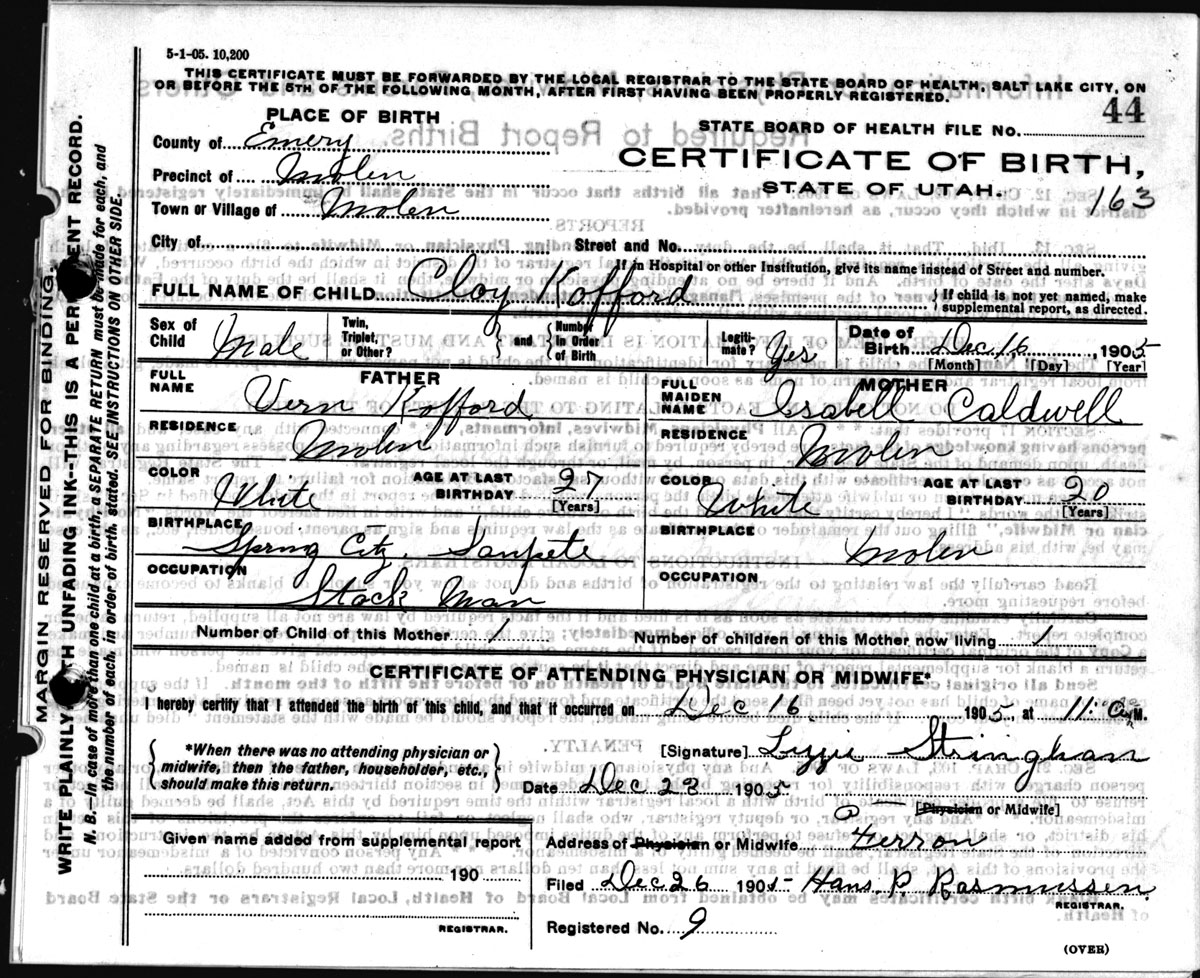 5-1-05. 10,200
THIS CERTIFICATE MUST BE FORWARDED BY THE LOCAL REGISTRAR TO THE STATE BOARD OF HEALTH, SALT LAKE CITY, ON
OR BEFORE THE 5TH OF THE FOLLOWING MONTH, AFTER FIRST HAVING BEEN PROPERLY REGISTERED.
44
PLACE OF BIRTH
STATE BOARD OF HEALTH FILE NO.
County of Emery
CERTIFICATE OF BIRTH,
Precinct of Molen
STATE OF UTAH.
163
Town or Village of Molen
City of Street and No.
If in Hospital or other Institution, give its name instead of Street and number.
FULL NAME OF CHILD Cloy Kofford
{ If child is not yet named, make
supplemental report, as directed.
Sex of Child Male Twin, Triplet, or Other? } and { Number In Order of Birth Legiti- mate? Yes Date of Birth Dec. 16, 1905
[Month] [Day] [Year]
FATHER
MOTHER
FULL NAME Vern Kofford
FULL MAIDEN NAME Isabell Caldwell
RESIDENCE Molen
RESIDENCE Molen
COLOR White AGE AT LAST BIRTHDAY 27 [Years]
COLOR White AGE AT LAST BIRTHDAY 20 [Years]
BIRTHPLACE Spring City, Sanpete
BIRTHPLACE Molen
OCCUPATION Stock Man
OCCUPATION
Number of Child of this Mother 1 Number of children of this Mother now living 1
CERTIFICATE OF ATTENDING PHYSICIAN OR MIDWIFE*
I hereby certify that I attended the birth of this child, and that it occurred on Dec 16 1905, at 11. A M.
{ *When there was no attending physician or
midwife, then the father, householder, etc.,
should make this return. }
[Signature] Lizzie Stringham
Date Dec. 23 1905
[Physician or Midwife]
Given name added from supplemental report
Address of Physician or Midwife Ferron
190
Filed Dec 26 1905 Hans. P. Rasmussen
REGISTRAR.
REGISTRAR.
Registered No. 9
(OVER)
MARGIN RESERVED FOR BINDING.
WRITE PLAINLY WITH UNFADING INK--THIS IS A PERMANENT RECORD.
N. B.—In case of more than one child at a birth, a SEPARATE RETURN must be made for each, and
the number of each, in order of birth, stated. SEE INSTRUCTIONS ON OTHER SIDE.